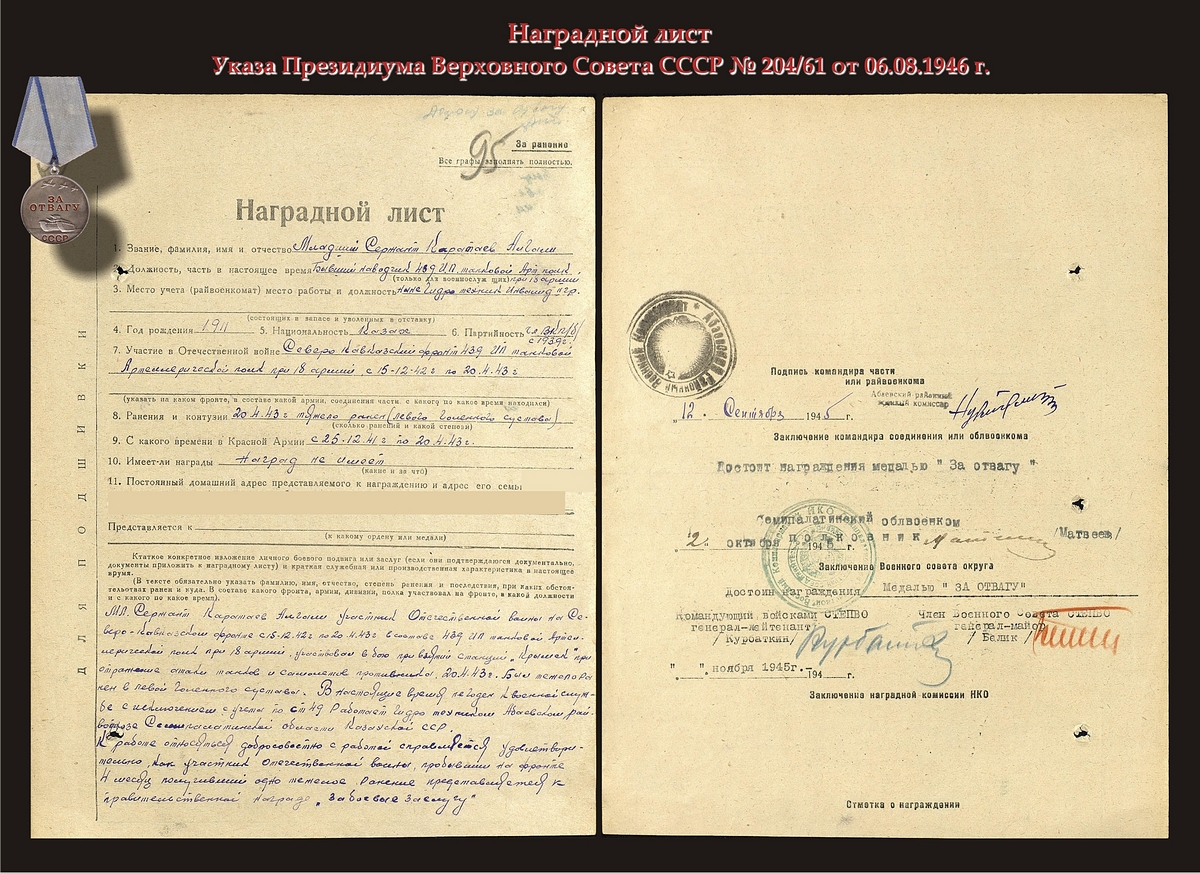 Наградной лист
Указа Президиума Верховного Совета СССР № 204/61 от 06.08.1946 г.
ЗА
ОТВАГУ
СССР
95
За ранение
Все графы заполнять полностью.
Наградной лист
1. Звание, фамилия, имя и отчество Младший Сержант Каратаев
2. Должность, часть в настоящее время Бывший наводчик 439 ИП танковой Арт. полк
(только для военнослужащих) при 18 армии
3. Место учета (райвоенкомат) место работы и должность ныне Гидро техник Инвалид
(состоящих в запасе и уволенных в отставку)
4. Год рождения 1911 5. Национальность Казах 6. Партийность чл. ВКП/б/
с 1939 г.
7. Участие в Отечественной войне Северо Кавказский фронт 439 ИП танковой
Артиллерической полк при 18 армий с 15-12-42 г по 20.4.43 г
(указать на каком фронте, в составе какой армии, соединения части, с какого по какое время находился)
8. Ранения и контузии 20.4.43 г тяжело ранен (левого голенного сустава)
(сколько ранений и какой степени)
9. С какого времени в Красной Армии с 25.12.41 г по 20.4.43 г.
10. Имеет-ли награды Наград не имеет
(какие и за что)
11. Постоянный домашний адрес представляемого к награждению и адрес его семьи
Представляется к
(к какому ордену или медали)
Кткаткое конкретное изложение личного боевого подвига или заслуг (если они подтверждаются документально,
документы приложить к наградному листу) и краткая служебная или производственная характеристика в настоящее
время.
(В тексте обязательно указать фамилию, имя, отчество, степень ранения и последствия, при каких обстоя-
тельствах ранен и куда. В составе какого фронта, армии, дивизии, полка участвовал на фронте, в какой должности
и с какого по какое время).
Мл. Сержант Каратаев участник Отечественной войны на Се-
веро-Кавказском фронте с 15-12.42 г по 20.4.43 г в составе 439 ИП танковой Артил-
лерической полк при 18 армий, участвовал в бою при взятий станций „Крымск" при
отражение атаки танков и самолетов противника, 20.4.43 г. Был тежело ра-
нен в левой голенного сустава. В настоящие время не годен к военной служ-
бе с исключением с учета по ст 49 Работает Гидро техником Абаевском рай-
Семипалатинской области Казахской ССР.
К работе относиться добросовестно с работой справляется удовлетвори-
тельно, Как участник Отечественной войны, пробывший на фронте
4 месяц получивший одно тежелое ранение представляется к
правительственной награде „За боевые заслуги"
ДЛЯ ПОДШИВКИ
Подпись командира части
или райвоенкома
Абаевский районный
военный комиссар
„12" Сентября 1945 г.
Заключение командира соединения или облвоенкома
Достоин награждения медалью " За отвагу "
Семипалатинский облвоенком
полковник /Матвеев/
"2" октября 1945 г.
Заключение Военного совета округа
Достоин награждения Медалью " ЗА ОТВАГУ"
Командующий войсками СТЕПВО Член Военного Совета СТЕПВО
генерал-лейтенант генерал-майор
/ Курбаткин/ / Белик /
" " ноября 1945г.- 194 г.
Заключение наградной комиссии НКО
Отметка о награждении